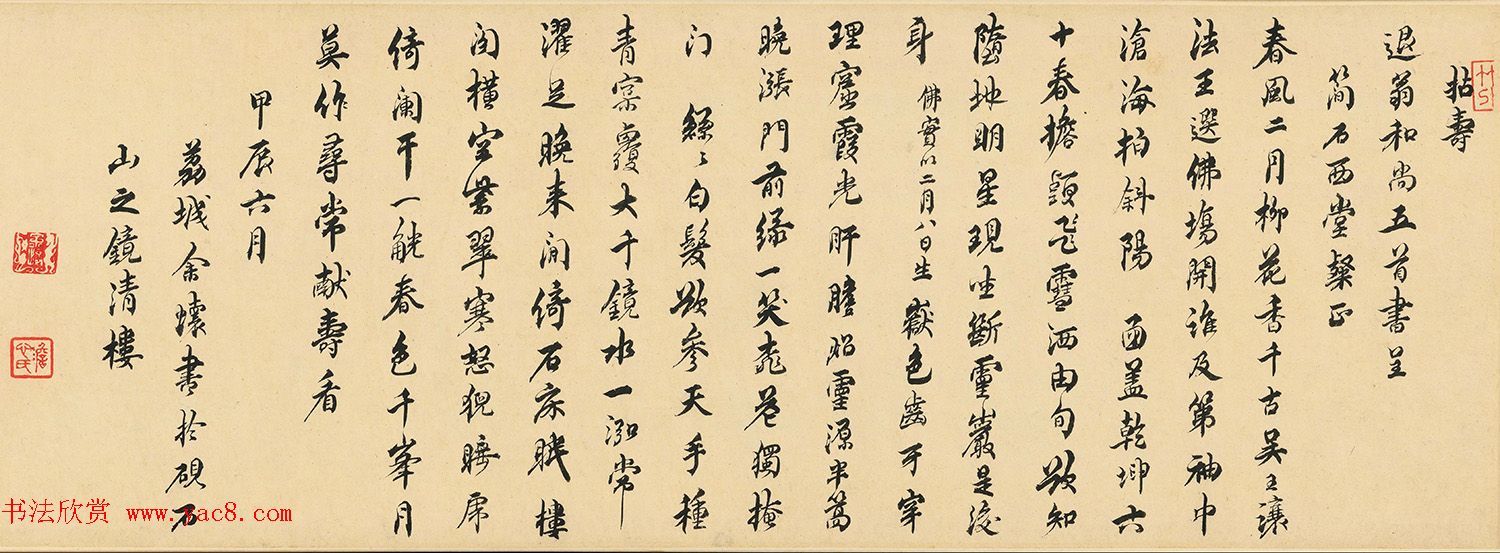 拈壽
退翁和尚五首書呈
簡石西堂粲正
春風二月柳花香千古吳王讓
法王選佛場開誰及第袖中
滄海拍斜陽 函蓋乾坤六
十春擔頭風雪洒由旬欲知
墮地明星現坐斷靈巖是後
身 佛實以二月八日生 嶽色齒牙穿
理窟霞光肝膽照靈源半篙
曉漲門前綠一笑巷獨掩
門 鬖鬖白髮欲參天手種
青宗覆大千鏡水一泓常
濯足晚來閒倚石床眠 樓
閣橫空紫翠寒怒猊睡虎
倚闌干一觥春色千峯月
莫作尋常獻壽看
甲辰六月
荔城余懷書於硯石
山之鏡清樓
书法欣赏 www.yac8.com